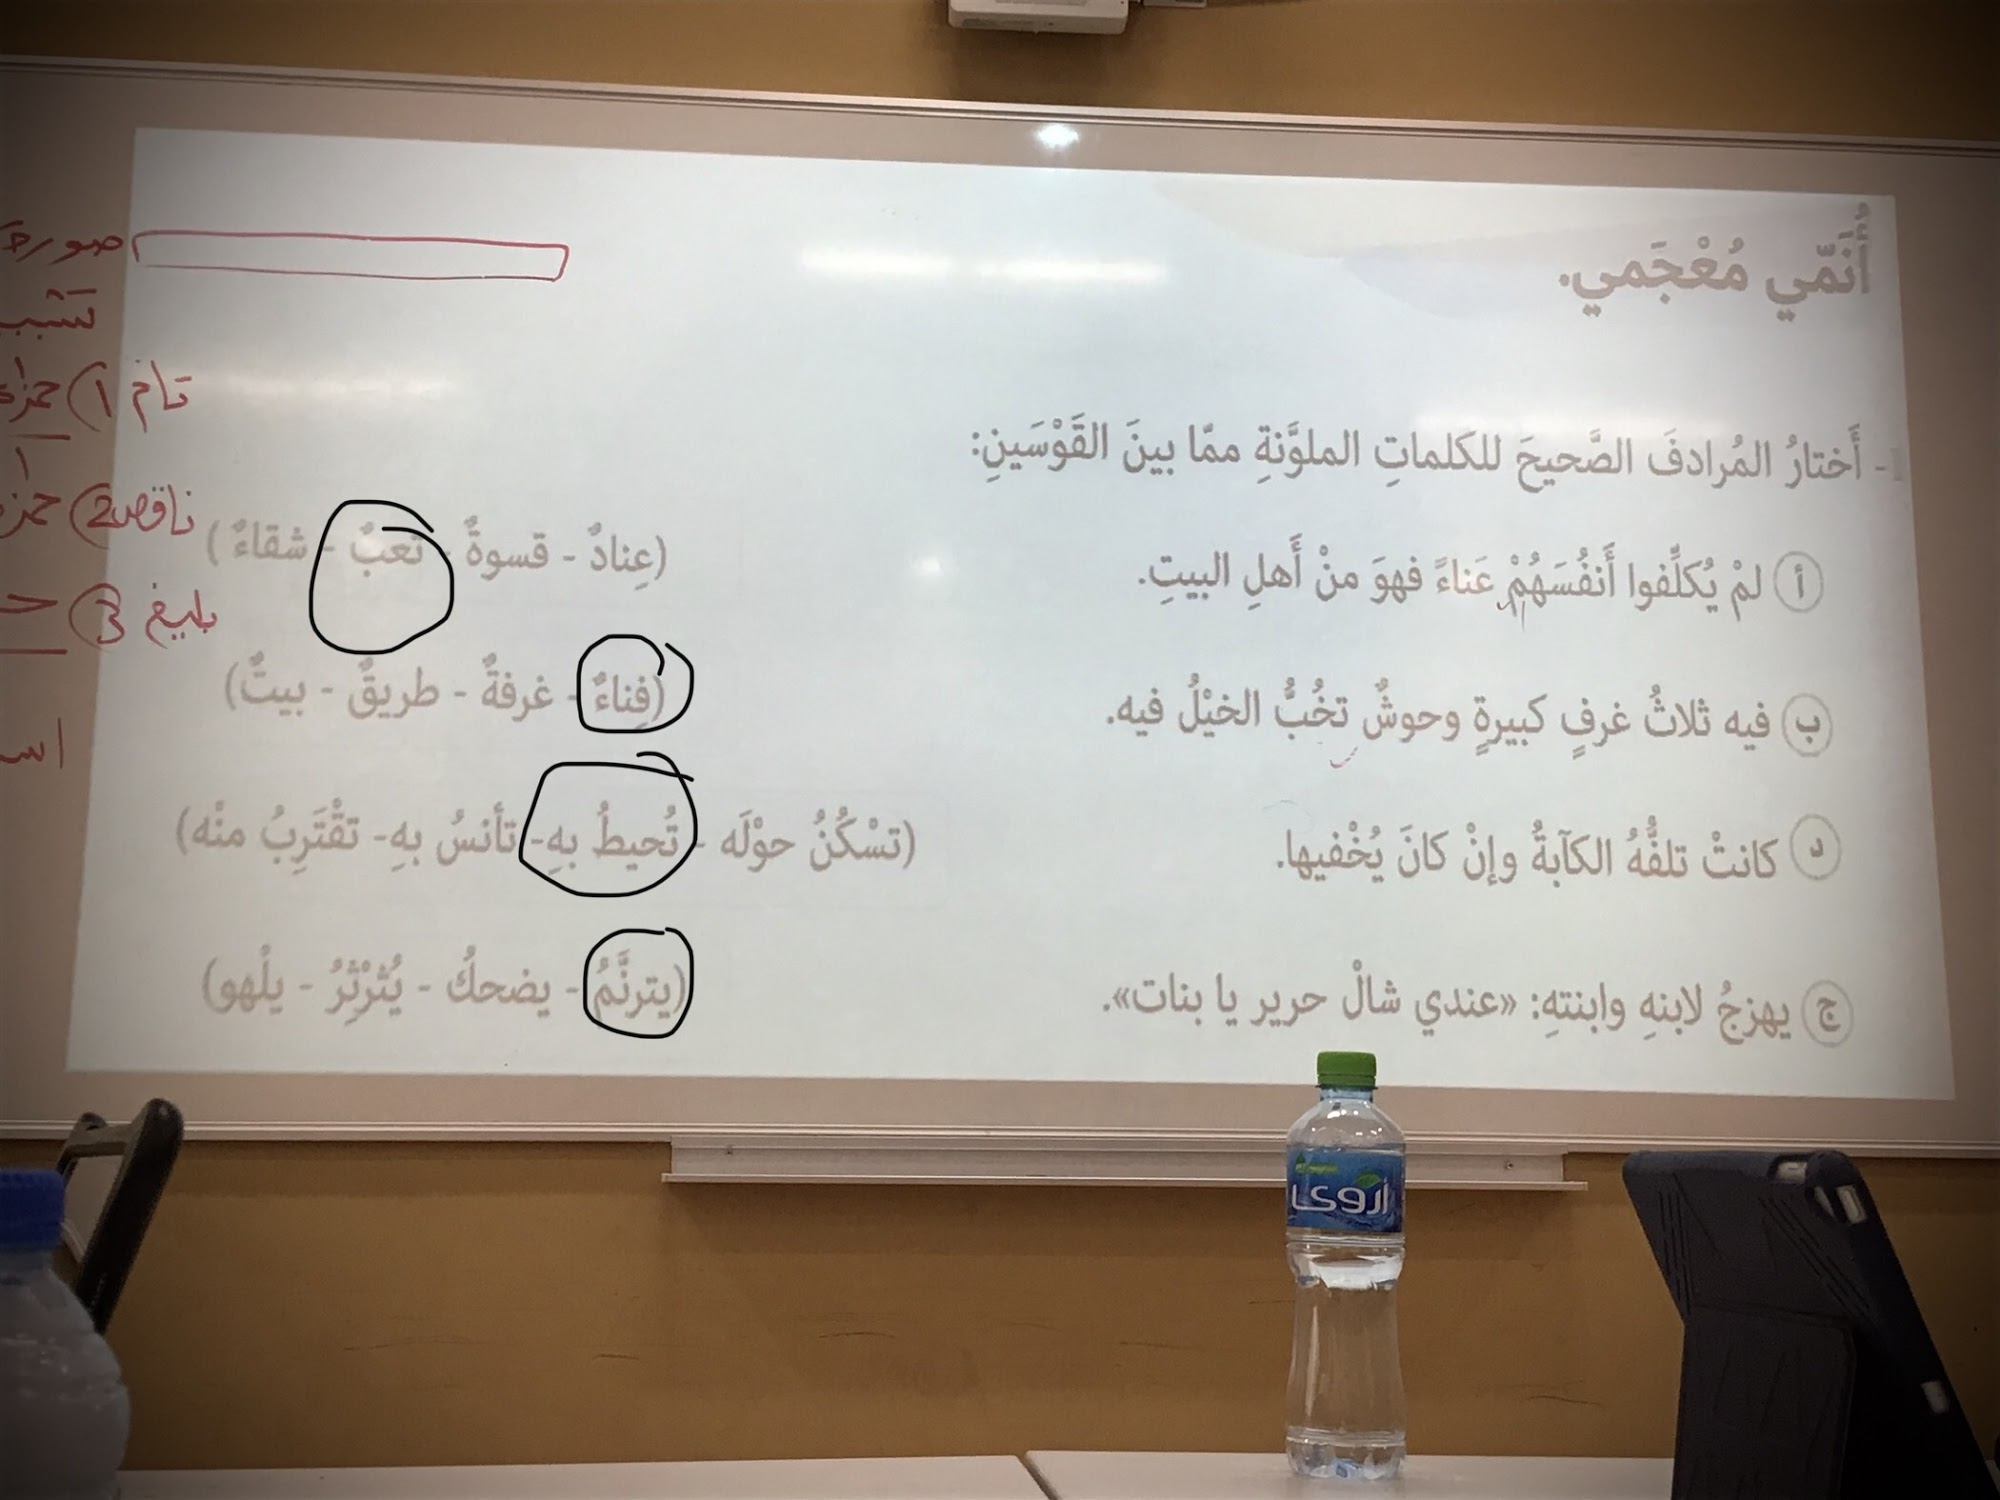 أُنَمّي مُعْجَمي.
- أَختارُ المُرادفَ الصَّحيحَ للكَلماتِ الملوَّنةِ ممّا بينَ القَوْسَينِ:
أ لمْ يُكلِّفوا أَنفُسَهُمْ عَناءً فهوَ منْ أَهلِ البيتِ. (عِنادٌ - قسوةٌ - تعبٌ - شقاءٌ)
ب فيه ثلاثُ غرفٍ كبيرةٍ وحوشٌ تخُبُّ الخيْلُ فيه. (فِناءٌ - غرفةٌ - طريقٌ - بيتٌ)
د كانتْ تلفُّهُ الكآبةُ وإنْ كانَ يُخْفيها. (تسْكُنُ حوْلَه - تُحيطُ بهِ - تأنسُ بهِ - تقْتَرِبُ منْه)
ج يهزجُ لابنهِ وابنتهِ: «عندي شالْ حرير يا بنات». (يترنَّمُ - يضحكُ - يُثرْثِرُ - يلْهو)
صورة
تام 1
ناقص 2
بليغ 3
أروى